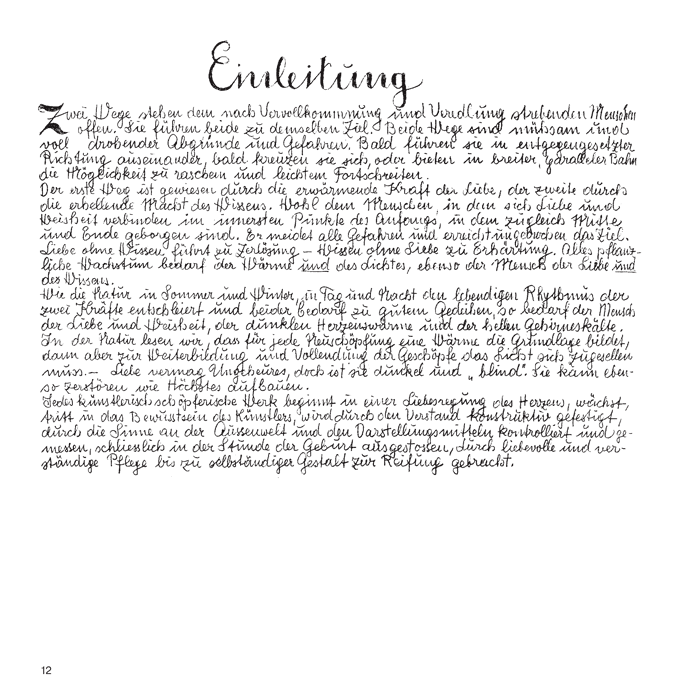 Einleitung
Zwei Wege stehen dem nach Vervollkommnung und Veredlung strebenden Menschen
offen. Sie führen beide zu demselben Ziel. Beide Wege sind mühsam und
voll drohender Abgründe und Gefahren. Bald führen sie in entgegengesetzter
Richtung auseinander, bald kreuzen sie sich, oder bieten in breiter, paralleler Bahn
die Möglichkeit zu raschem und leichtem Fortschreiten.
Der erste Weg ist gewiesen durch die erwärmende Kraft der Liebe, der zweite durch
die erhellende Macht des Wissens. Wohl dem Menschen, in dem sich Liebe und
Weisheit verbinden im innersten Punkte des Anfangs, in dem zugleich Mitte
und Ende geborgen sind. Er meidet alle Gefahren und erreicht ungebrochen das Ziel.
Liebe ohne Wissen führt zu Zerlösung – Wissen ohne Liebe zu Erhärtung. Alles pflanz-
liche Wachstum bedarf der Wärme und des Lichtes, ebenso der Mensch der Liebe und
des Wissens.
Wie die Natur in Sommer und Winter, in Tag und Nacht den lebendigen Rhythmus der
zwei Kräfte entschleiert und beider bedarf zu gutem Gedeihen, so bedarf der Mensch
der Liebe und Weisheit, der dunklen Herzenswärme und der hellen Gehirneskälte.
In der Natur lesen wir, das für jede Neuschöpfung eine Wärme die Grundlage bildet,
dann aber zur Weiterbildung und Vollendung der Geschöpfe das Licht sich zugesellen
muss. – Liebe vermag Ungeheures, doch ist sie dunkel und „blind". Sie kann eben-
so zerstören wie Höchstes aufbauen.
Jedes künstlerisch schöpferische Werk beginnt in einer Liebesregung des Herzens, wächst,
tritt in das Bewusstsein des Künstlers, wird durch den Verstand konstruktiv gefestigt,
durch die Sinne an der Aussenwelt und den Darstellungsmitteln kontrolliert und ge-
messen, schliesslich in der Stunde der Geburt ausgestossen, durch liebevolle und ver-
ständige Pflege bis zu selbständiger Gestalt zur Reifung gebracht.
12